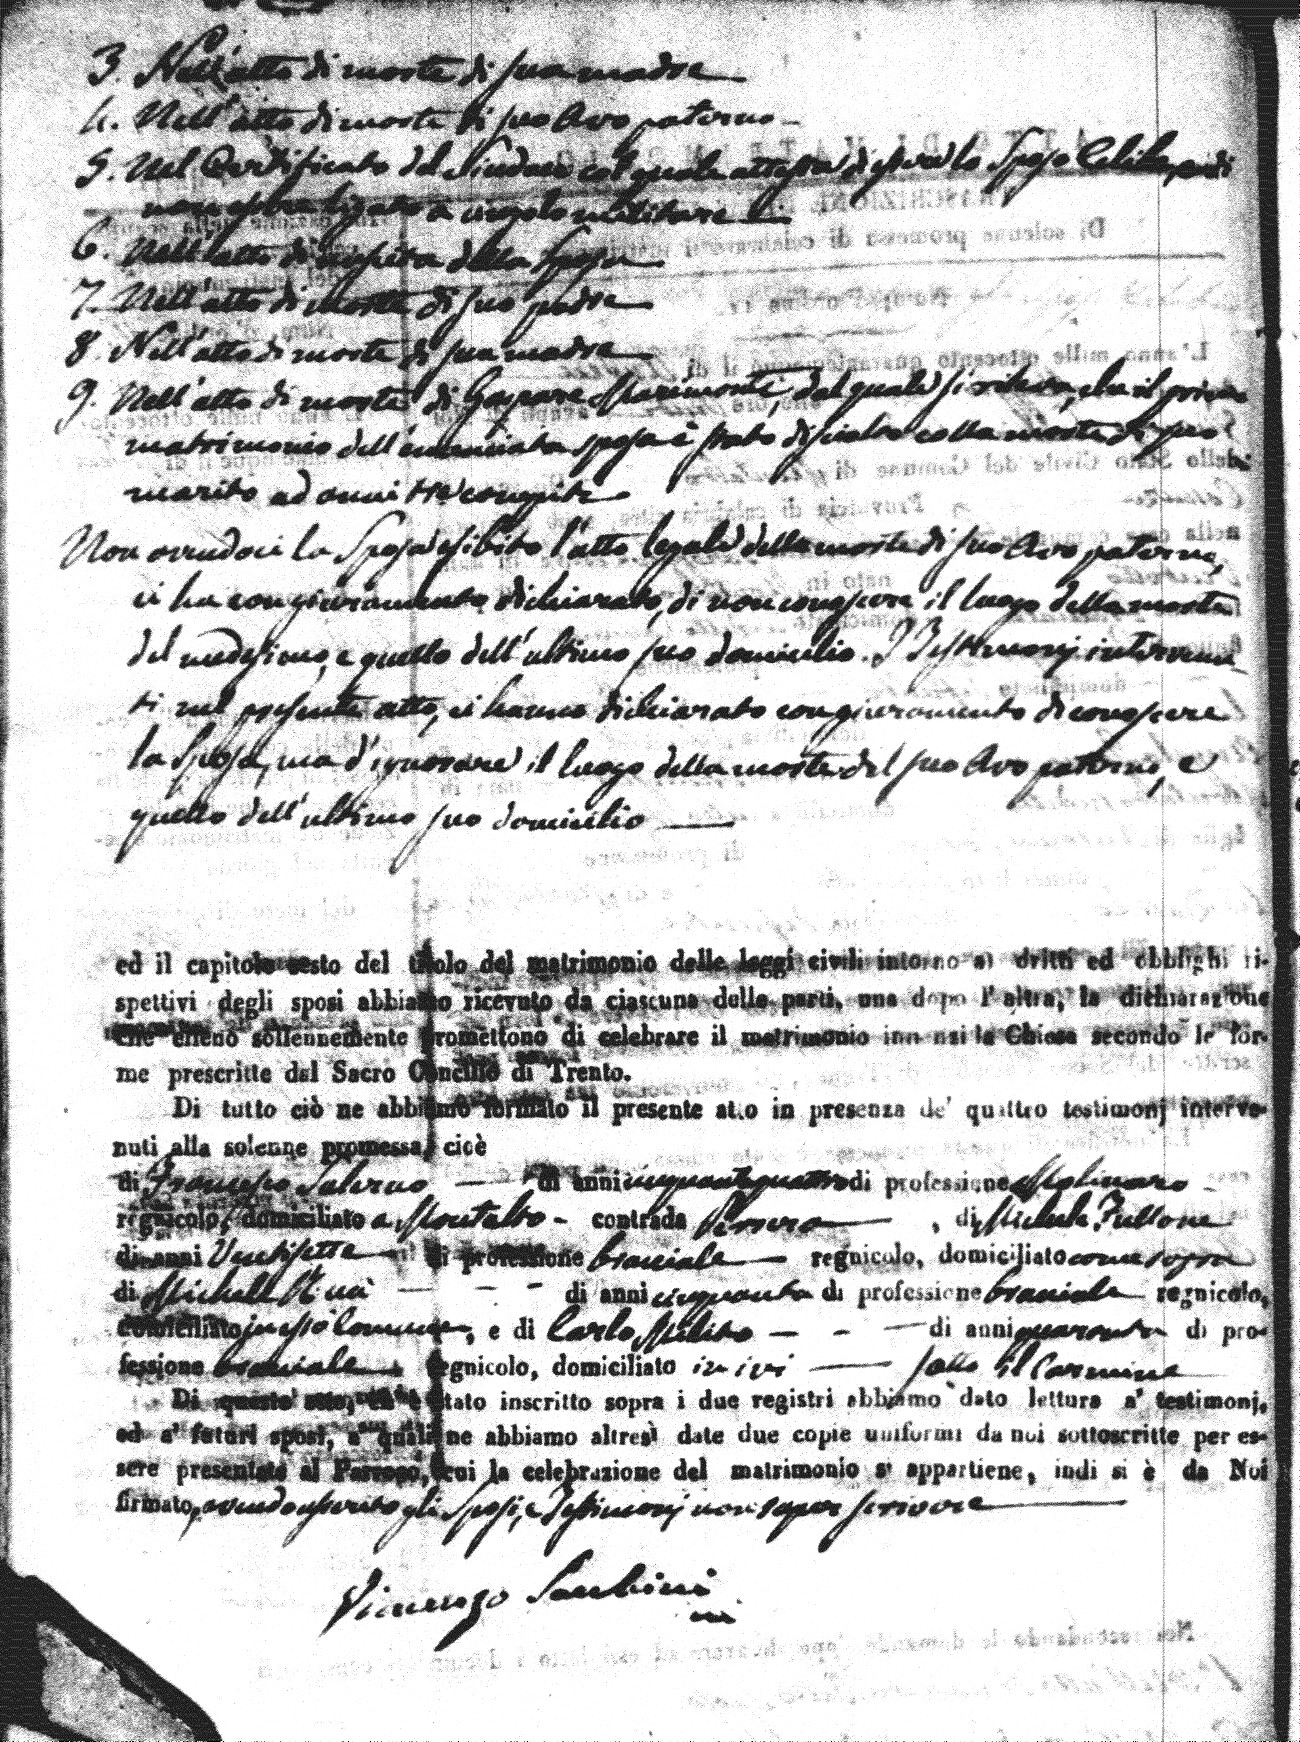 3. Nell'atto di morte di sua madre
4. Nell'atto di morte di suo Avo paterno
5. Nel Certificato del Sindaco col quale attesta di essere lo Sposo Celibe, e di
non essere ligato a vincolo militare
6. Nell'atto di nascita della Sposa
7. Nell'atto di morte di suo padre
8. Nell'atto di morte di sua madre
9. Nell'atto di morte di Gaspare Marimonte, dal quale si rileva, che il primo
matrimonio dell'enunciata sposa è stato disciolto colla morte di suo
marito ad anni tre compiti
Non avendoci la Sposa esibito l'atto legale della morte di suo Avo paterno,
ci ha con giuramento dichiarato, di non conoscere il luogo della morte
del medesimo, e quello dell'ultimo suo domicilio. I Testimonj intervenu-
ti nel presente atto, ci hanno dichiarato con giuramento di conoscere
la Sposa, ma d'ignorare il luogo della morte del suo Avo paterno, e
quello dell'ultimo suo domicilio
ed il capitolo sesto del titolo del matrimonio delle leggi civili intorno ai dritti ed obblighi ri-
spettivi degli sposi abbiamo ricevuto da ciascuna delle parti, una dopo l'altra, la dichiarazione
che elleno sollennemente promettono di celebrare il matrimonio innanzi la Chiesa secondo le for-
me prescritte dal Sacro Concilio di Trento.
Di tutto ciò ne abbiamo formato il presente atto in presenza de' quattro testimonj interve-
nuti alla solenne promessa, cioè
di Francesco Salerno di anni cinquantaquattro di professione Molinaro
regnicolo, domiciliato a Montalto - contrada , di Michele Fullone
di anni Ventisette di professione braciale regnicolo, domiciliato come sopra
di Michele di anni cinquanta di professione braciale regnicolo,
domiciliato in essio Comune, e di Carlo Milito di anni quaranta di pro-
fessione braciale regnicolo, domiciliato in ivi sotto il Carmine
Di questo atto, ch'è stato inscritto sopra i due registri abbiamo dato lettura a' testimonj,
ed a' futuri sposi, a' quali ne abbiamo altresì date due copie uniformi da noi sottoscritte per es-
sere presentate al Parroco, cui la celebrazione del matrimonio si appartiene, indi si è da Noi
firmato, avendo asserito gli Sposi, e Testimonj non saper scrivere
Vincenzo